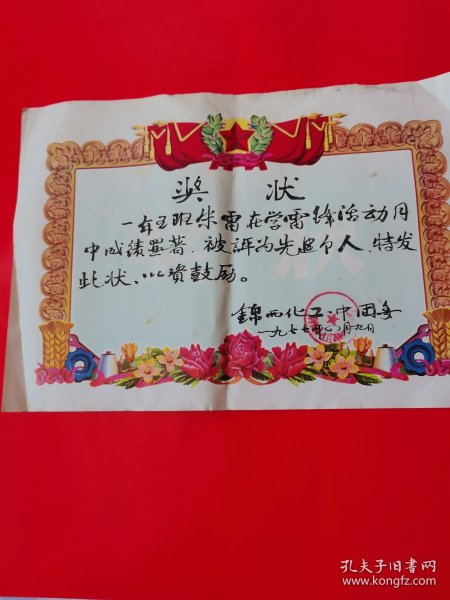 奖 状
一年五班朱雷在学雷锋活动月
中成绩显著、被评为先进个人、特发
此状、以资鼓励。
錦西化工一中团委
一九七七年 月九日
孔夫子旧书网
www.kongfz.com